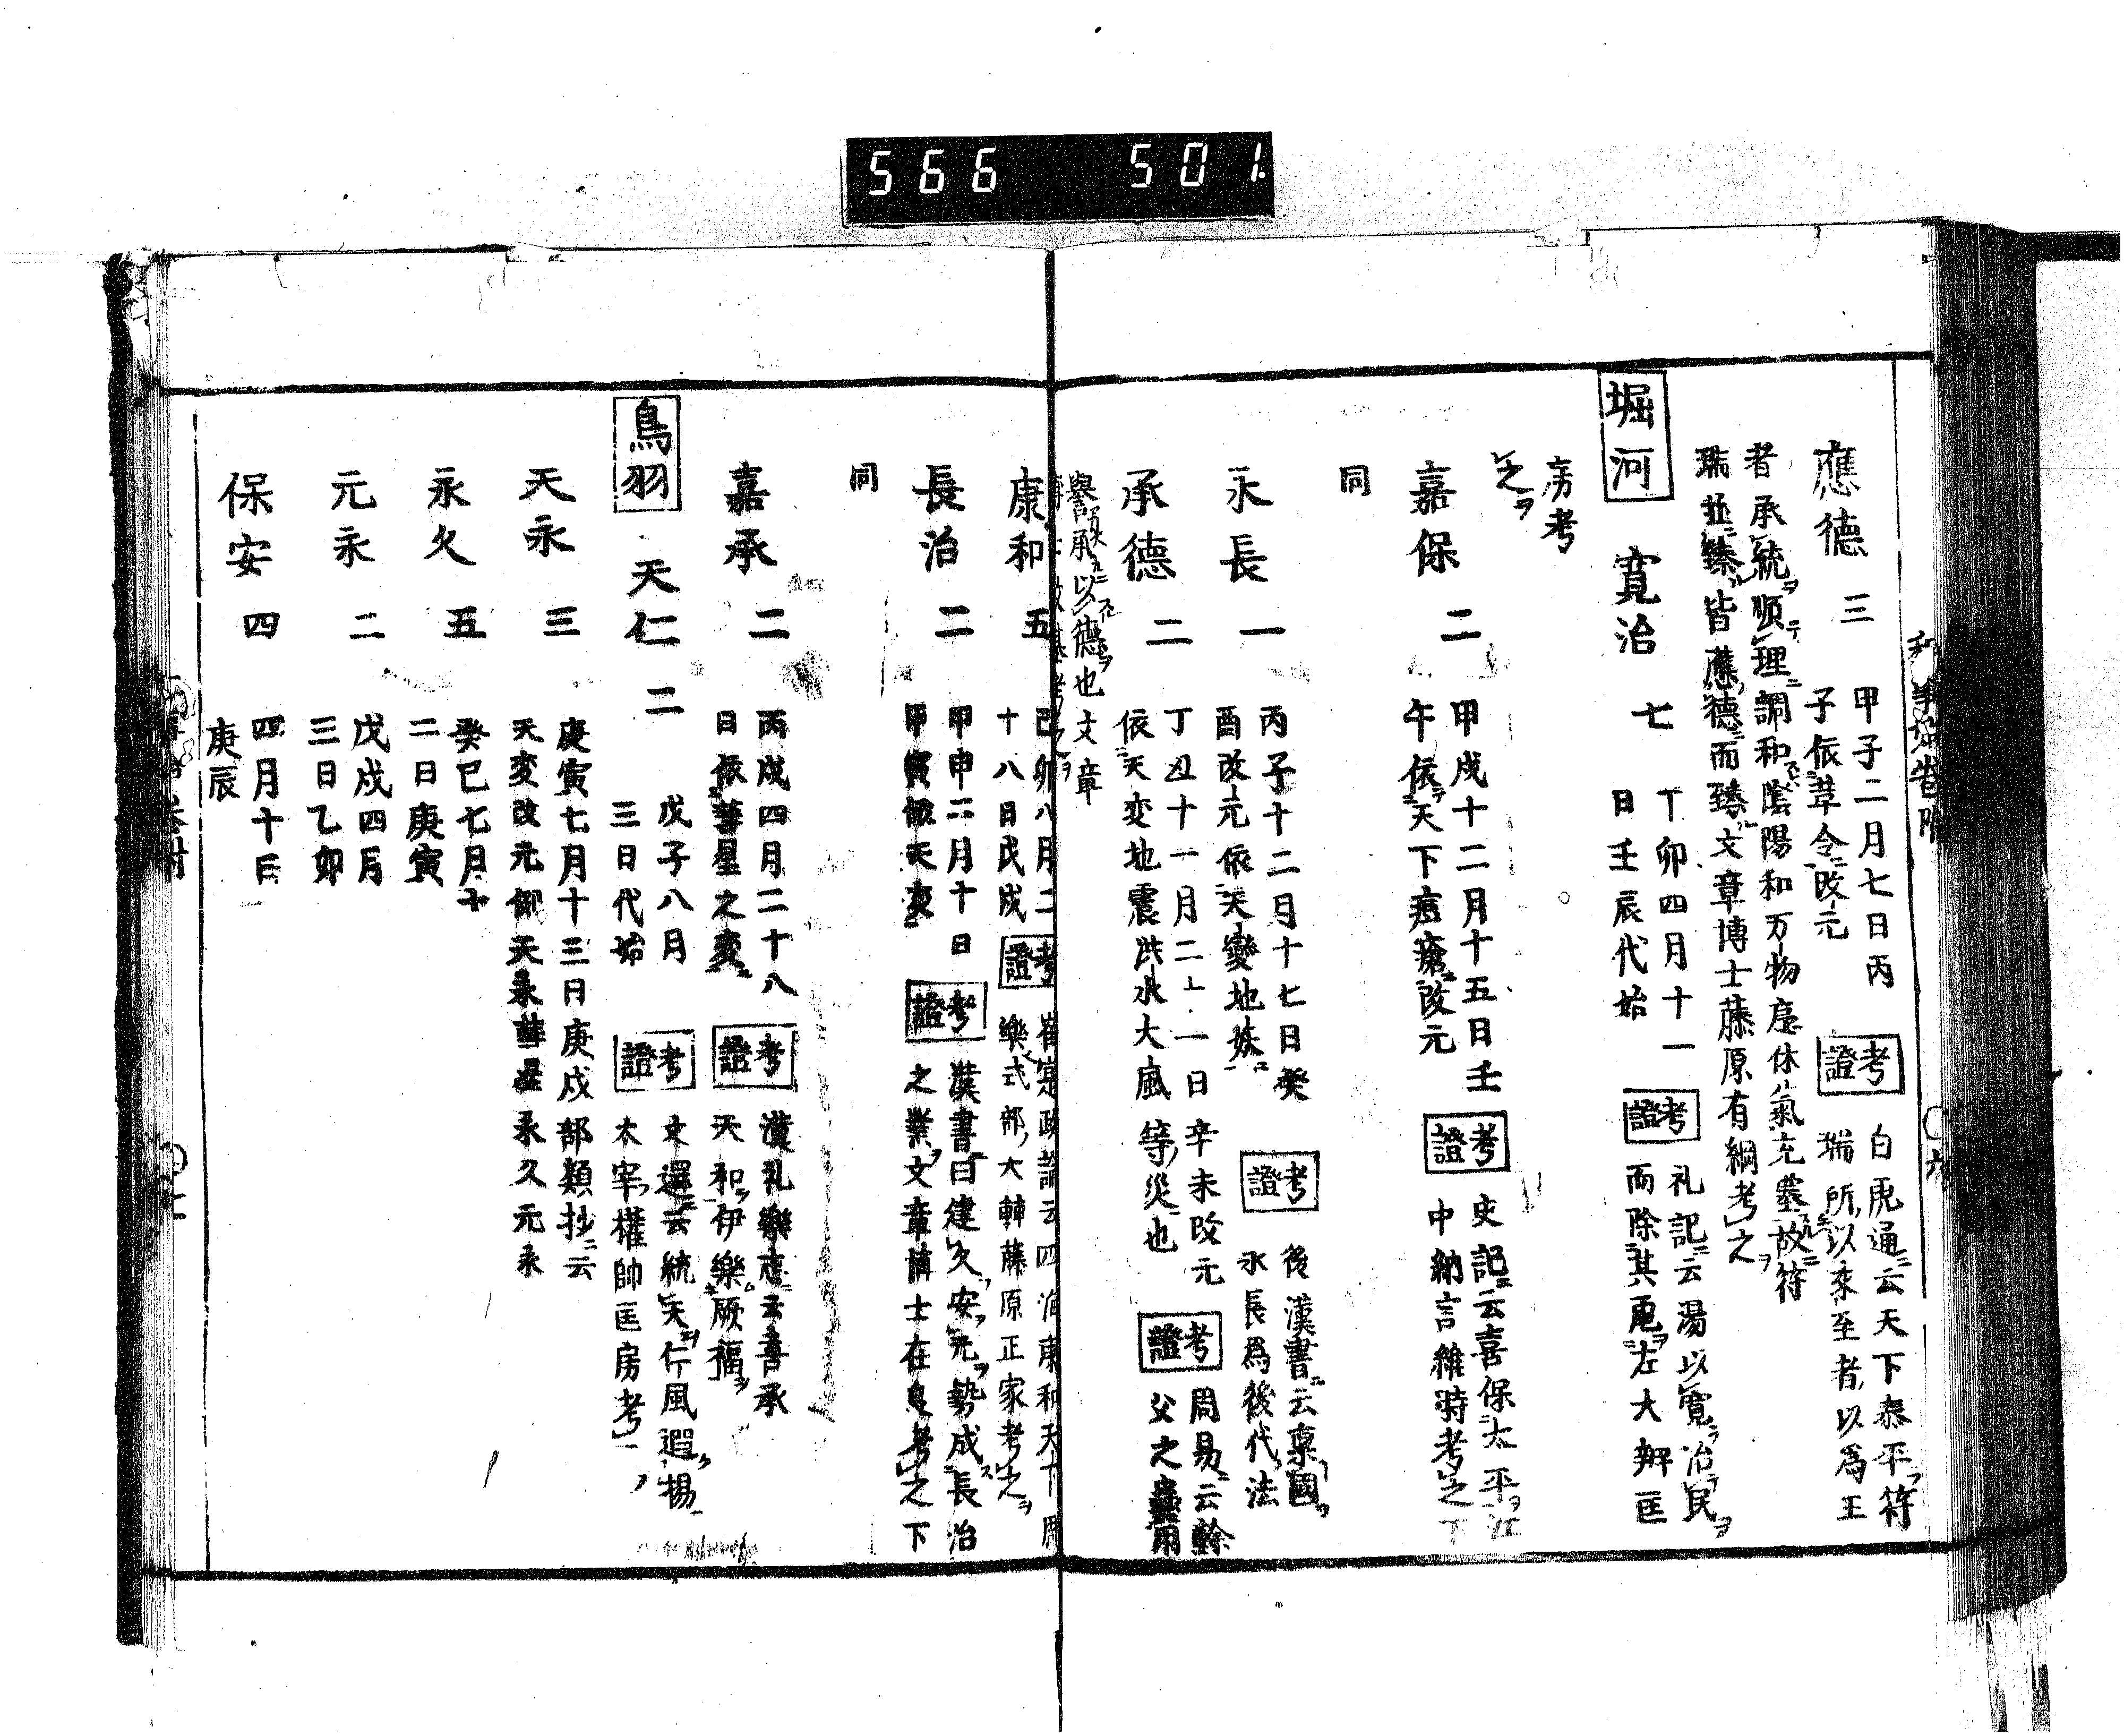 566 501.
應德 三 甲子二月七日丙
子依革令改元
考證 白虎通云天下泰平符
瑞所以來至者以爲王
者承統順理調和陰陽和万物序休氣充塞故符
瑞並臻皆應德而臻文章博士藤原有綱考之
堀河 寛治 七 丁卯四月十一
日壬辰代始
考證 礼記云湯以寛治民
而除其虐左大辨匡
房考
之
嘉保 二 甲戌十二月十五日壬
午依天下疱瘡改元
考證 史記云嘉保太平江
中納言維時考之下
同
永長 一 丙子十二月十七日癸
酉改元依天變地妖
考證 後漢書云稟國
永長爲後代法
承德 二 丁丑十一月二十一日辛未改元
依天変地震洪水大風等災也
考證 周易云幹
父之蠱用
譽承以德也文章
康和 五 己卯八月二
十八日戊戌
考證 崔寔政論云四海康和天下周
樂式部大輔藤原正家考之
長治 二 甲申二月十日
甲寅依天変
考證 漢書曰建久安元勢成長治
之業文章博士在良考之下
同
嘉承 二 丙戌四月二十八
日依彗星之変
考證 漢礼樂志云嘉承
天和伊樂厥福
鳥羽 天仁 二 戊子八月
三日代始
考證 文選云統天仁風遐揚
太宰權帥匡房考
天永 三 庚寅七月十三日庚戌部類抄云
天変改元御天永彗星永久元永
永久 五 癸巳七月十
二日庚寅
元永 二 戊戌四月
三日乙卯
保安 四 四月十日
庚辰